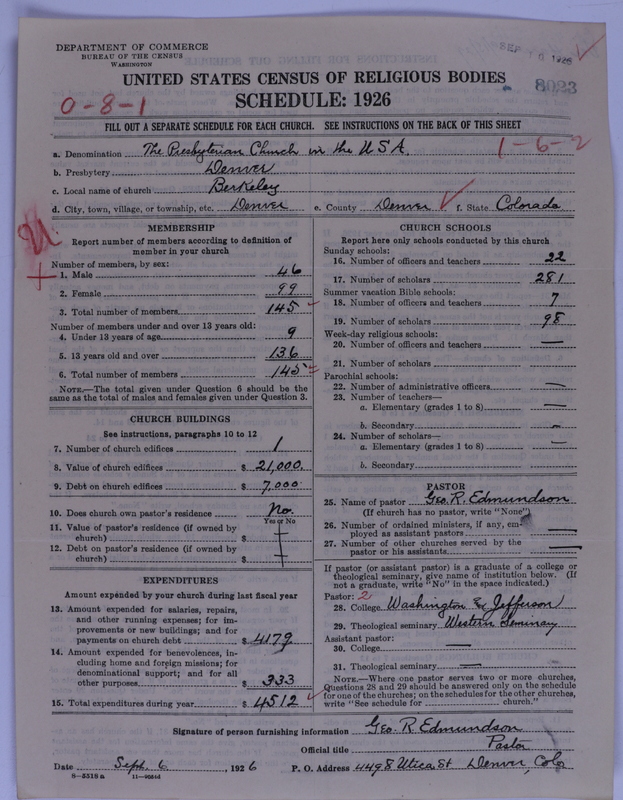 DEPARTMENT OF COMMERCE
BUREAU OF THE CENSUS
WASHINGTON
SEP 1926
8023
UNITED STATES CENSUS OF RELIGIOUS BODIES
SCHEDULE: 1926
0-8-1
FILL OUT A SEPARATE SCHEDULE FOR EACH CHURCH. SEE INSTRUCTIONS ON THE BACK OF THIS SHEET
a. Denomination The Presbyterian Church in the U S A. 1-6-2
b. Presbytery Denver
c. Local name of church Berkeley
d. City, town, village, or township, etc. Denver e. County Denver f. State Colorado
MEMBERSHIP
Report number of members according to definition of
member in your church
Number of members, by sex:
1. Male 46
2. Female 99
3. Total number of members 145
Number of members under and over 13 years old:
4. Under 13 years of age 9
5. 13 years old and over 136
6. Total number of members 145
NOTE.—The total given under Question 6 should be
same as the total of males and females given under Question 3.
CHURCH BUILDINGS
See instructions, paragraphs 10 to 12
7. Number of church edifices 1
8. Value of church edifices $ 21,000.
9. Debt on church edifices $ 7,000
10. Does church own pastor's residence No.
Yes or No
11. Value of pastor's residence (if owned by
church) $
12. Debt on pastor's residence (if owned by
church) $
EXPENDITURES
Amount expended by your church during last fiscal year
13. Amount expended for salaries, repairs,
and other running expenses; for im-
provements or new buildings; and for
payments on church debt $ 4179
14. Amount expended for benevolences, in-
cluding home and foreign missions; for
denominational support; and for all
other purposes $ 333
15. Total expenditures during year $ 4512
CHURCH SCHOOLS
Report here only schools conducted by this church
Sunday schools:
16. Number of officers and teachers 22
17. Number of scholars 281
Summer vacation Bible schools:
18. Number of officers and teachers 7
19. Number of scholars 98
Week-day religious schools:
20. Number of officers and teachers —
21. Number of scholars —
Parochial schools:
22. Number of administrative officers —
23. Number of teachers—
a. Elementary (grades 1 to 8) —
b. Secondary —
24. Number of scholars—
a. Elementary (grades 1 to 8) —
b. Secondary
PASTOR
25. Name of pastor Geo. R. Edmundson
(If church has no pastor, write "None")
26. Number of ordained ministers, if any, em-
ployed as assistant pastors —
27. Number of other churches served by the
pastor or his assistants —
If pastor (or assistant pastor) is a graduate of a college or
theological seminary, give name of institution below. (If
not a graduate, write "No" in the space indicated.)
Pastor: 2
28. College Washington & Jefferson
29. Theological seminary Western Seminary
Assistant pastor:
30. College —
31. Theological seminary —
NOTE.—Where one pastor serves two or more churches,
Questions 28 and 29 should be answered only on the schedule
for one of the churches; on the schedules for the other churches,
write "See schedule for church."
Signature of person furnishing information Geo. R. Edmundson
Official title Pastor
Date Sept. 6, 1926 P. O. Address 4498 Utica St Denver, Colo
8-5518 a